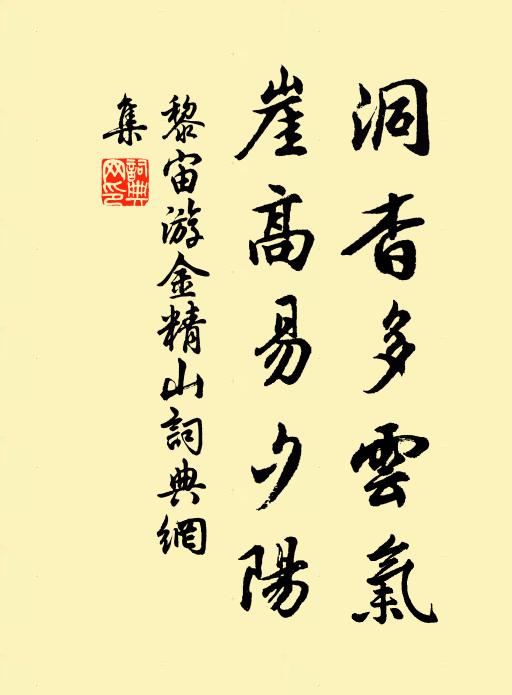 洞杳多雲氣
崖高易夕陽
黎宙游金精山詞典網
集
詞典
网印